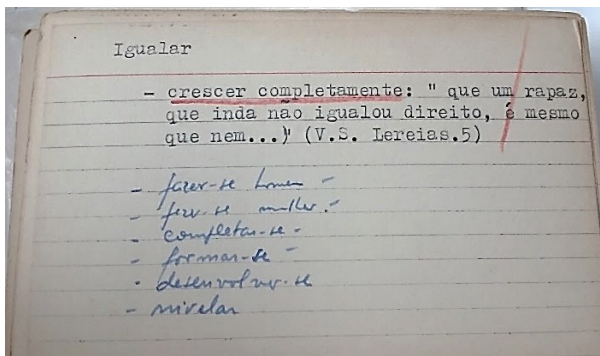 Igualar
- crescer completamente: " que um rapaz,
que inda não igualou direito, é mesmo
que nem...)" (V.S. Lereias.5)
- fazer-se homem -
- fezr-se mulher. -
- completar-se -
- formar-se -
- desenvolver-se
- nivelar